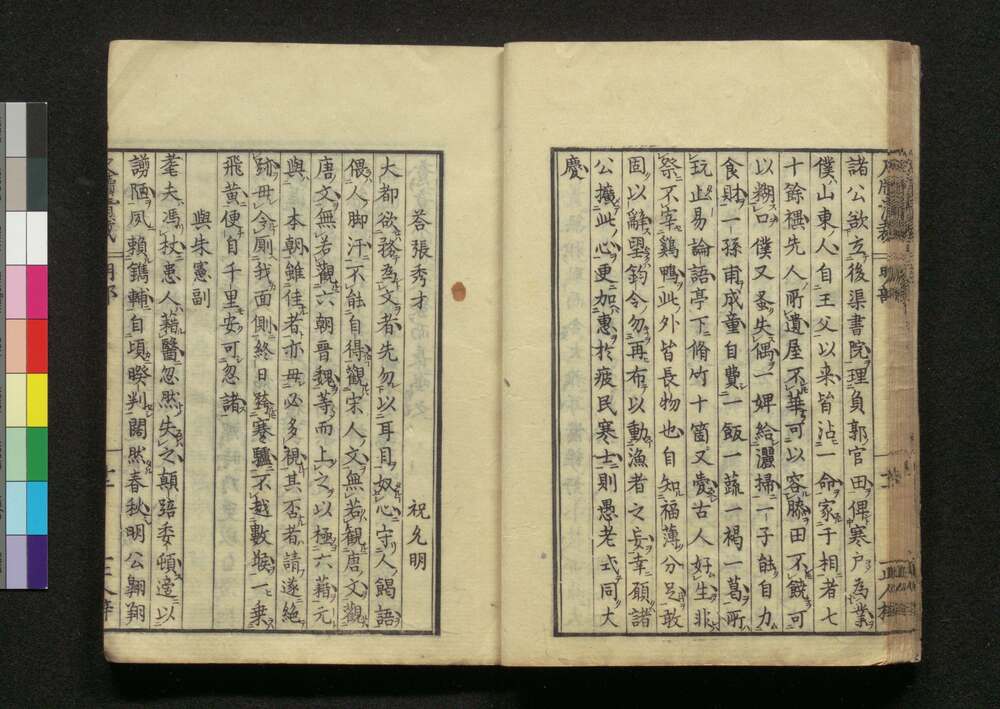 諸公欲立後渠書院理負郭官田俾寒戸為業
僕山東人自王父以来皆沾一命家子相者七
十餘禩先人所遺屋不華可以容膝田不饒可
以糊口僕又蚤失偶一婢給灑掃一子能自力
食財一孫甫成童自費一飯一蔬一褐一葛所
玩止易論語亭下脩竹十箇又愛古人好生非
祭不宰鷄鴨此外皆長物也自知福薄分足敢
固以辭望鈞令勿再布以動漁者之妄幸願諸
公擴此心更加惠於疲民寒士則愚老式同大
慶
荅張秀才
祝允明
大都欲務為文者先勿以耳目奴心守人餲語
偎人脚汗不能自得觀宋人文無若觀唐文觀
唐文無若觀六朝晋魏等而上之以極六藉元
與本朝雖佳者亦毋必多視其否者請遂絶
跡毋令厠我面側終日跨蹇驢不越數堠一乗
飛黄便自千里安可忽諸
與朱憲副
耄夫馮杖患人藉醫忽然失之顛踣委頓遂以
謭陋夙賴鐫輔自頃暌判闊然春秋明公翱翔